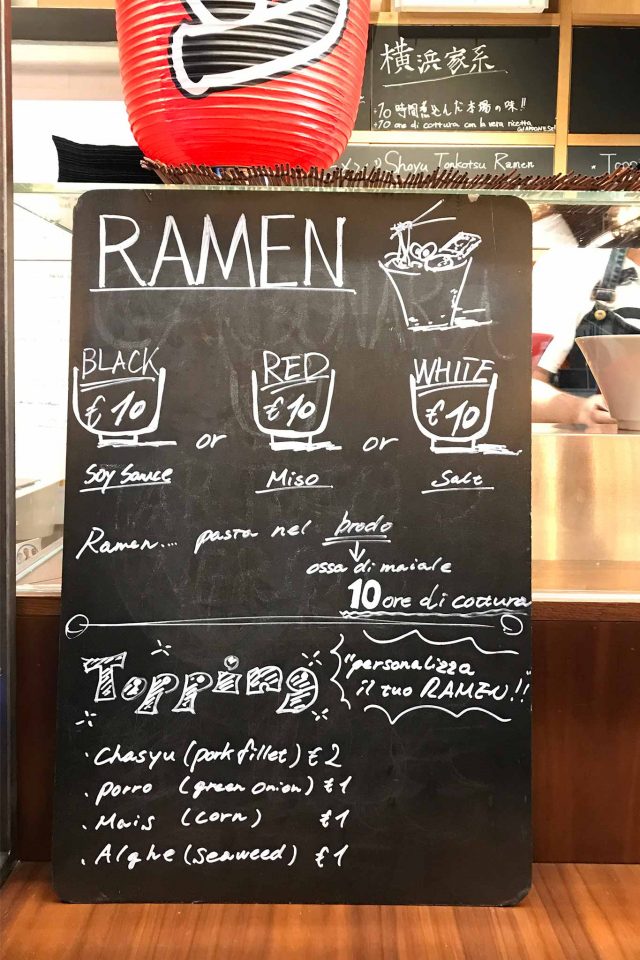 横浜家系
・10時間煮込んだ本場の味!!
・10 ore di cottura con la vera ricetta
GIAPPONESE
Shoyu Tonkotsu Ramen
RAMEN
BLACK
€10
or
RED
€10
or
WHITE
€10
Soy Sauce
Miso
Salt
Ramen... pasta nel brodo
ossa di maiale
10 ore di cottura
Topping
"personalizza
il tuo RAMEN!!"
・Chasyu (pork fillet) €2
・Porro (green onion) €1
・Mais (corn) €1
・Alghe (seaweed) €1